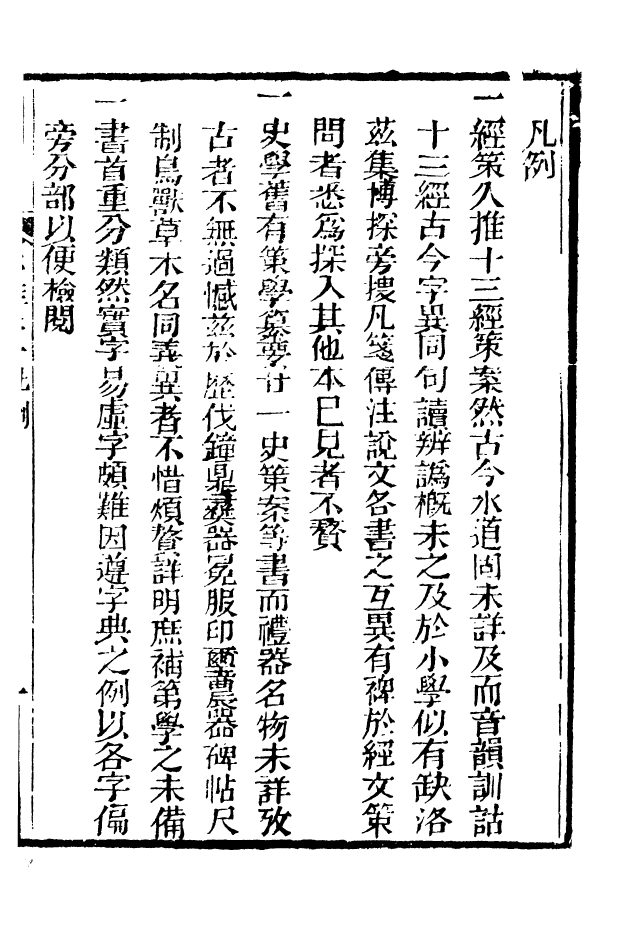 凡例
一經策久推十三經策案然古今水道固未詳及而音韻訓詁
十三經古今字異同句讀辨譌概未之及於小學似有缺洛
茲集博探旁搜凡箋傳注說文各書之互異有裨於經文策
問者悉爲採入其他本巳見者不贅
一史學舊有策學纂要廿一史策案等書而禮器名物未詳攷
古者不無過憾茲於歷伐鐘鼎彝器冕服印璽農器碑帖尺
制鳥獸草木名同義異者不惜煩贅詳明庶補第學之未備
一書首重分類然實字易虛字頗難因遵字典之例以各字偏
旁分部以便檢閱